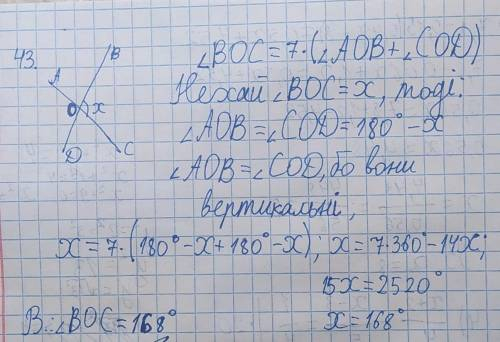 43.
A
B
O
x
D
C
∠BOC=7·(∠AOB+∠COD)
Нехай ∠BOC=x, тоді:
∠AOB=∠COD=180°-x
∠AOB=∠COD, бо вони
вертикальні,
x=7·(180°-x+180°-x); x=7·360°-14x;
15x=2520°
x=168°
В.:∠BOC=168°